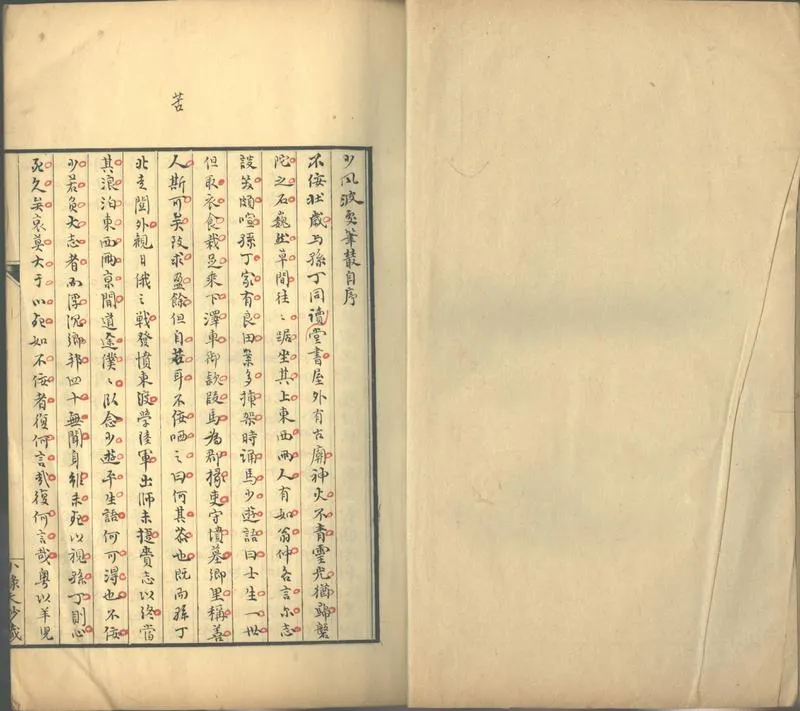 苦
少風波處筆叢自序
不佞壯歲與孫丁同讀堂書屋外有古廟神火不青靈光猶歸磐
陀之石巍然草間往〻踞坐其上東西兩人有如翁仲各言尔志
談笑頗喧孫丁家有良田業多揀架時誦馬少遊語曰士生一世
但取衣食栽足乘下澤車御款段馬為郡掾吏守墳墓鄉里稱善
人斯可矣致求盈餘但自莊耳不佞哂之曰何其恭也既而孫丁
北走閩外觀日俄之戰發憤東渡學陸軍出師未捷賫志以終當
其浪泊東西兩京間道途僕〻臥念少遊平生語何可得也不佞
少若負大志者而浮沉鄉邦四十無聞身雖未死以視孫丁則心
死久矣哀莫大于心死如不佞者復何言哉復何言哉粵以羊兒
小綠天抄藏